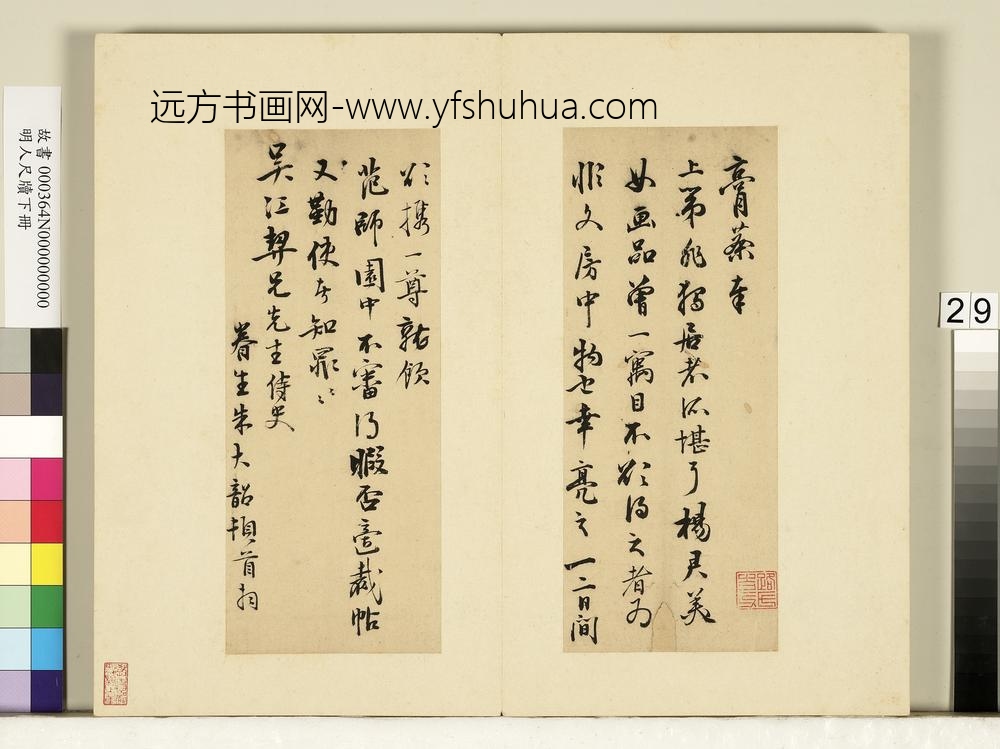 远方书画网-www.yfshuhua.com
膏藥奉
上第非獨居者所堪了楊君美
女画品曾一寓目不欲得之者為
非文房中物也幸亮之一二日間
欲携一尊就飲
范師園中不審得暇否
裁帖
又勤使者知罪〻
吳江契兄先生侍史
眷生朱大韶頓首
故書 000364N000000000
明人尺牘下冊
29